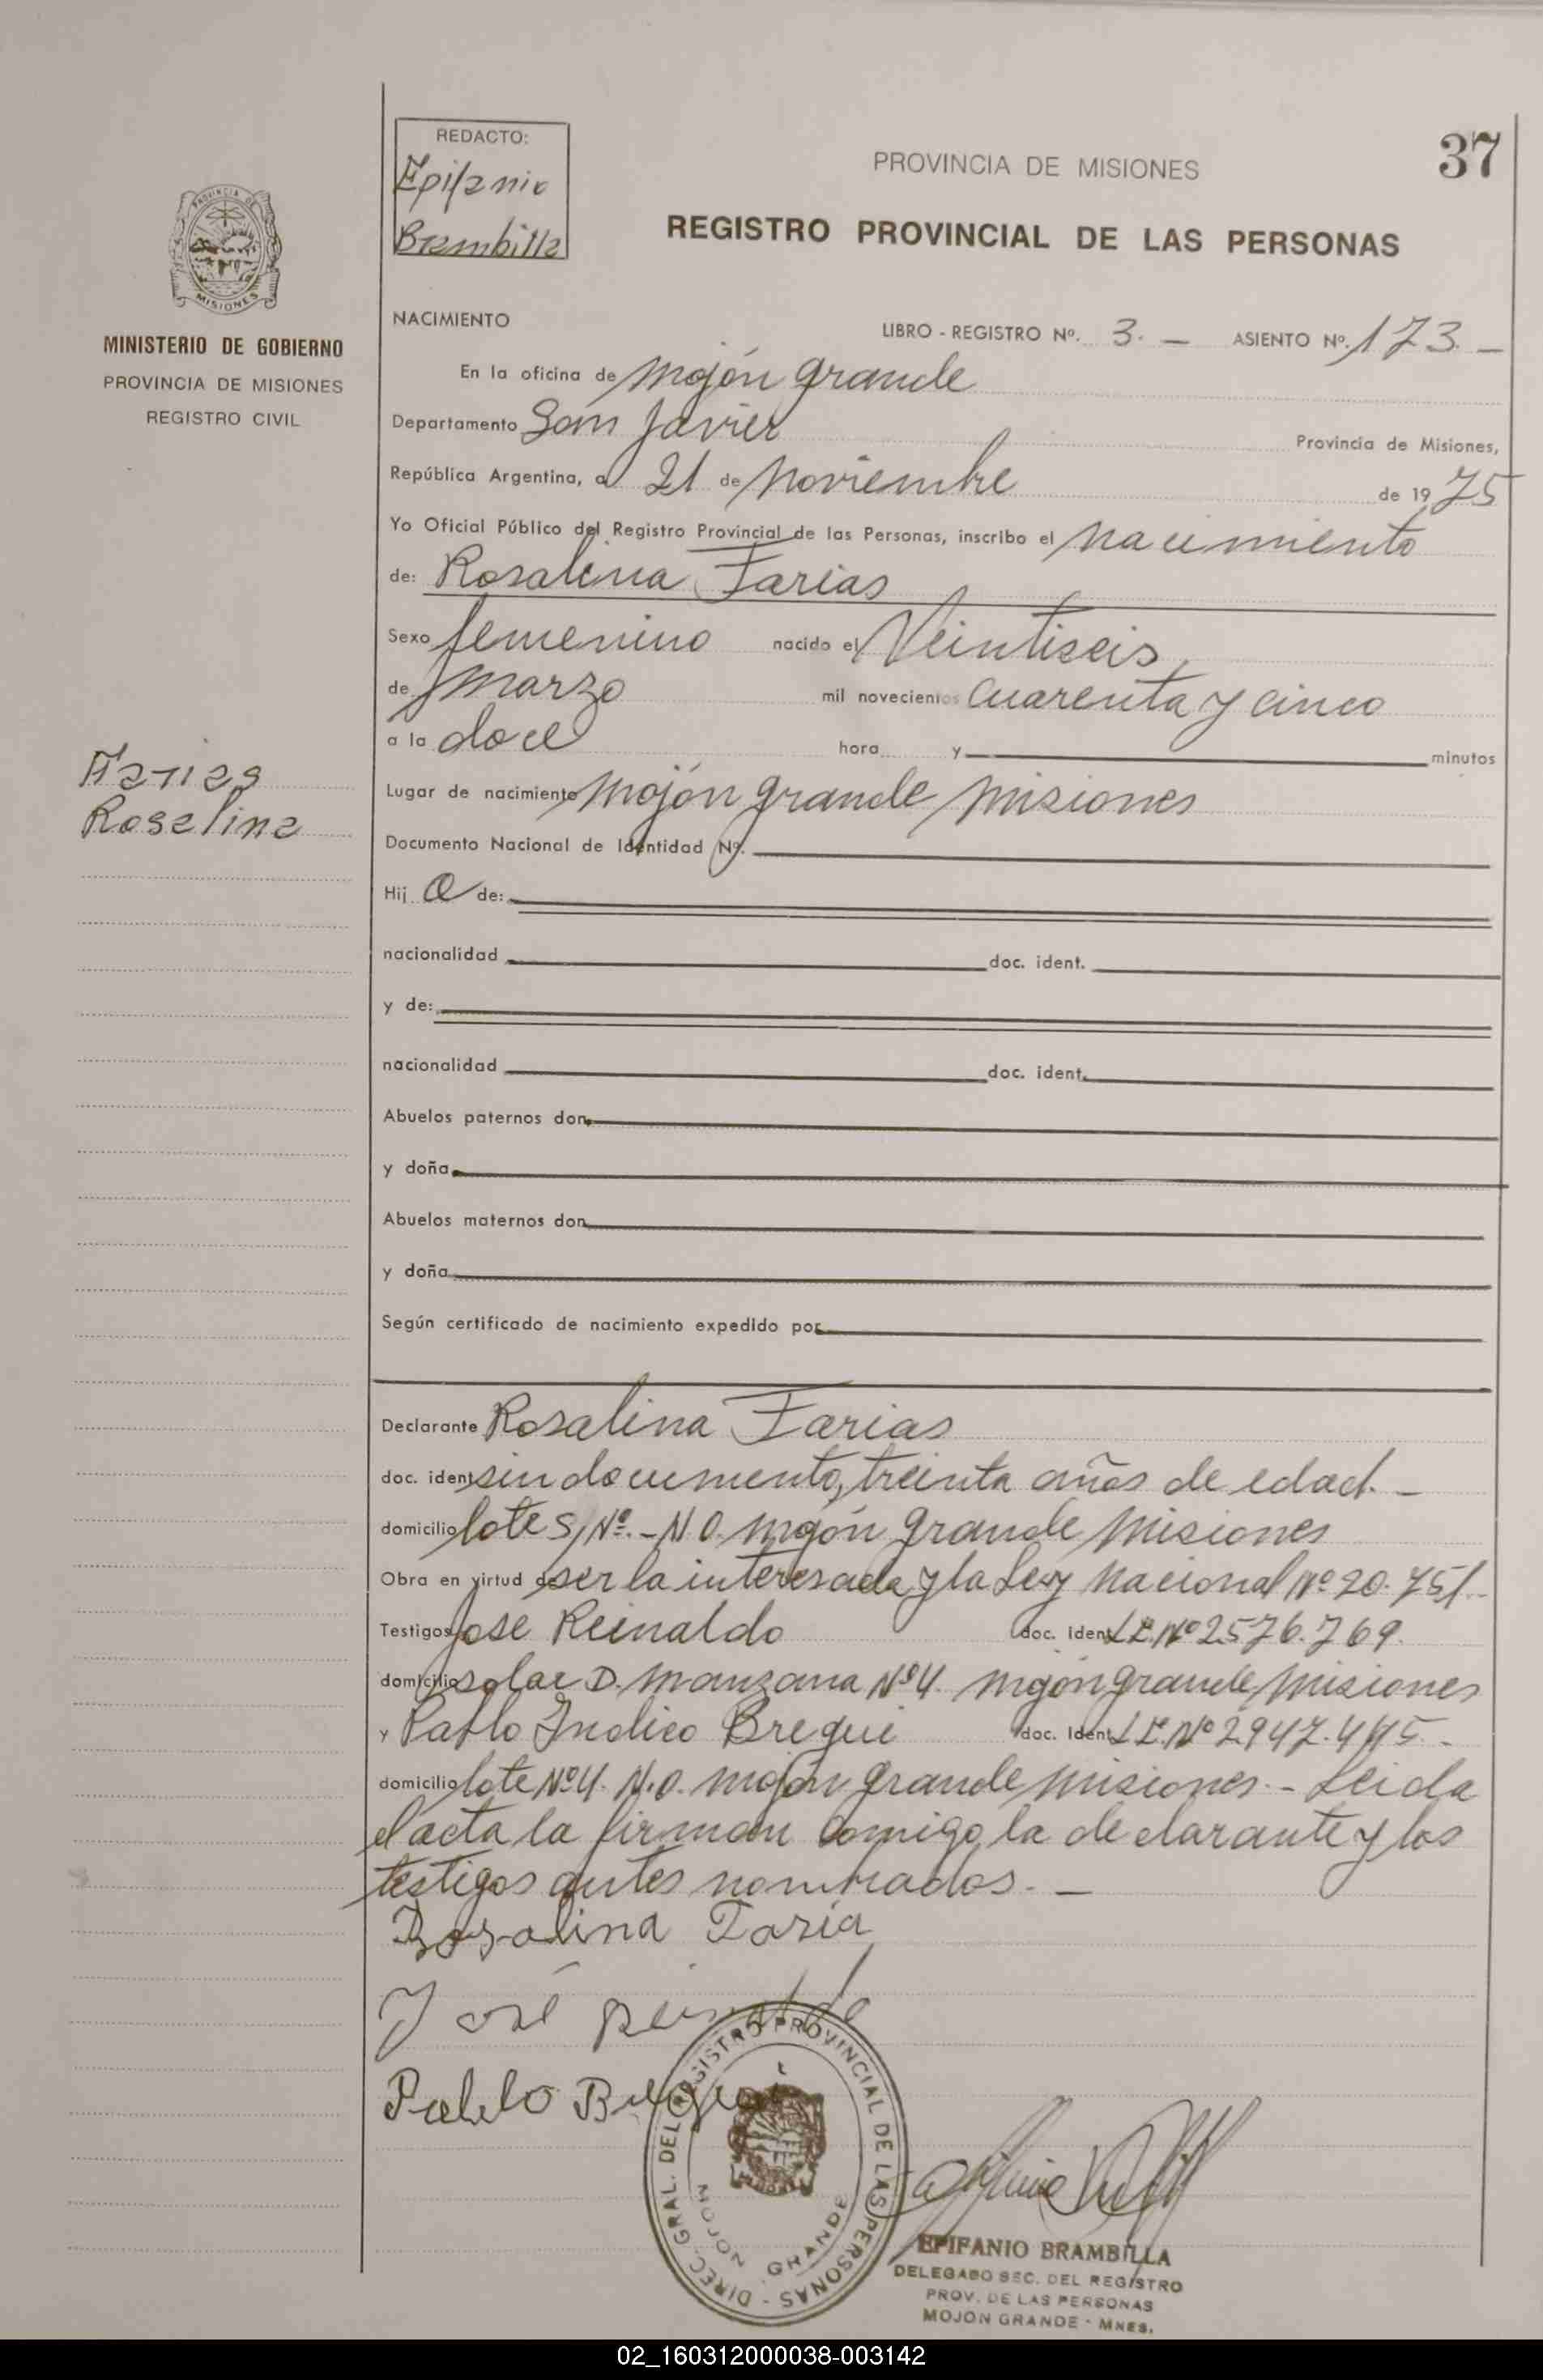 REDACTO:
Epifanio
Brambilla
37
PROVINCIA DE MISIONES
REGISTRO PROVINCIAL DE LAS PERSONAS
PROVINCIA DE
MISIONES
MINISTERIO DE GOBIERNO
PROVINCIA DE MISIONES
REGISTRO CIVIL
Farias
Rosalina
NACIMIENTO
LIBRO - REGISTRO Nº. 3. — ASIENTO Nº. 173. —
En la oficina de Mojón grande
Departamento San Javier Provincia de Misiones,
República Argentina, a 21 de Noviembre de 1975
Yo Oficial Público del Registro Provincial de las Personas, inscribo el nacimiento
de: Rosalina Farias
Sexo femenino nacido el Veintiseis
de Marzo mil novecientos Cuarenta y cinco
a la doce hora y minutos
Lugar de nacimiento Mojón grande Misiones
Documento Nacional de Identidad Nº.
Hij a de:
nacionalidad doc. ident.
y de:
nacionalidad doc. ident.
Abuelos paternos don
y doña
Abuelos maternos don
y doña
Según certificado de nacimiento expedido por
Declarante Rosalina Farias
doc. ident sin documento, treinta años de edad. —
domicilio lote S/Nº. - N.O. Mojón grande Misiones
Obra en virtud de ser la interesada y la Ley Nacional Nº 20.751.-
Testigos Jose Reinaldo doc. ident L.E. Nº 2576.769.
domicilio solar D. Manzana Nº 4. Mojón grande Misiones
y Pablo Indico Bregui doc. Ident L.E. Nº 2.947.445.-
domicilio lote Nº 4. N.O. Mojón grande Misiones.- Leida
el acta la firman comigo, la declarante y los
testigos antes nombrados. —
Rosalina Faria
José Reinaldo
Pablo Bregui
DIREC. GRAL. DEL REGISTRO PROVINCIAL DE LAS PERSONAS -
MOJON GRANDE
EPIFANIO BRAMBILLA
DELEGADO SEC. DEL REGISTRO
PROV. DE LAS PERSONAS
MOJON GRANDE - MNES.
02_160312000038-003142